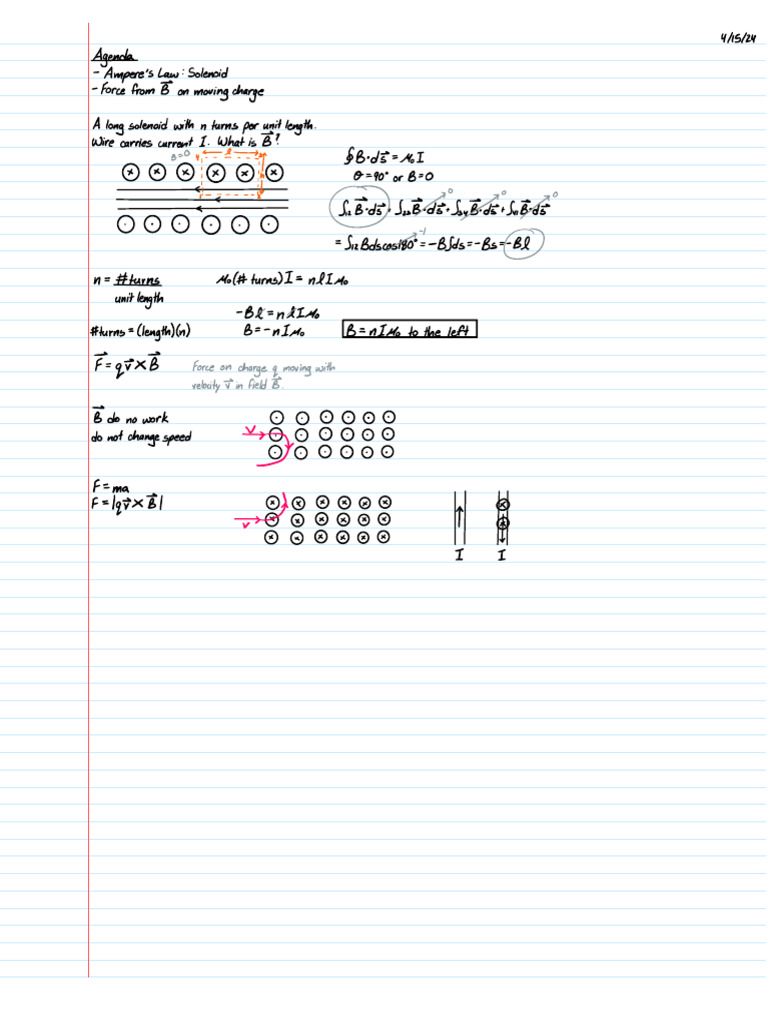 4/15/24
Agenda
- Ampere's Law: Solenoid
- Force from B⃗ on moving charge
A long solenoid with n turns per unit length.
Wire carries current I. What is B⃗?
B=0
l
∮B·ds⃗ = μ₀I
θ=90° or B=0
∫₁₂B⃗·ds⃗ + ∫₂₃B⃗·ds⃗ + ∫₃₄B⃗·ds⃗ + ∫₄₁B⃗·ds⃗
0 0 0
= ∫₁₂Bdscos180° = -B∫ds = -Bs = -Bl
-1
n = #turns
unit length
μ₀(# turns)I = nlIμ₀
-Bl = nlIμ₀
#turns = (length)(n)
B = -nIμ₀
B = nIμ₀ to the left
F⃗ = qv⃗ × B⃗
Force on charge q moving with
velocity v⃗ in field B⃗.
B⃗ do no work
do not change speed
V
F = ma
F = |qv⃗ × B⃗|
V
I I